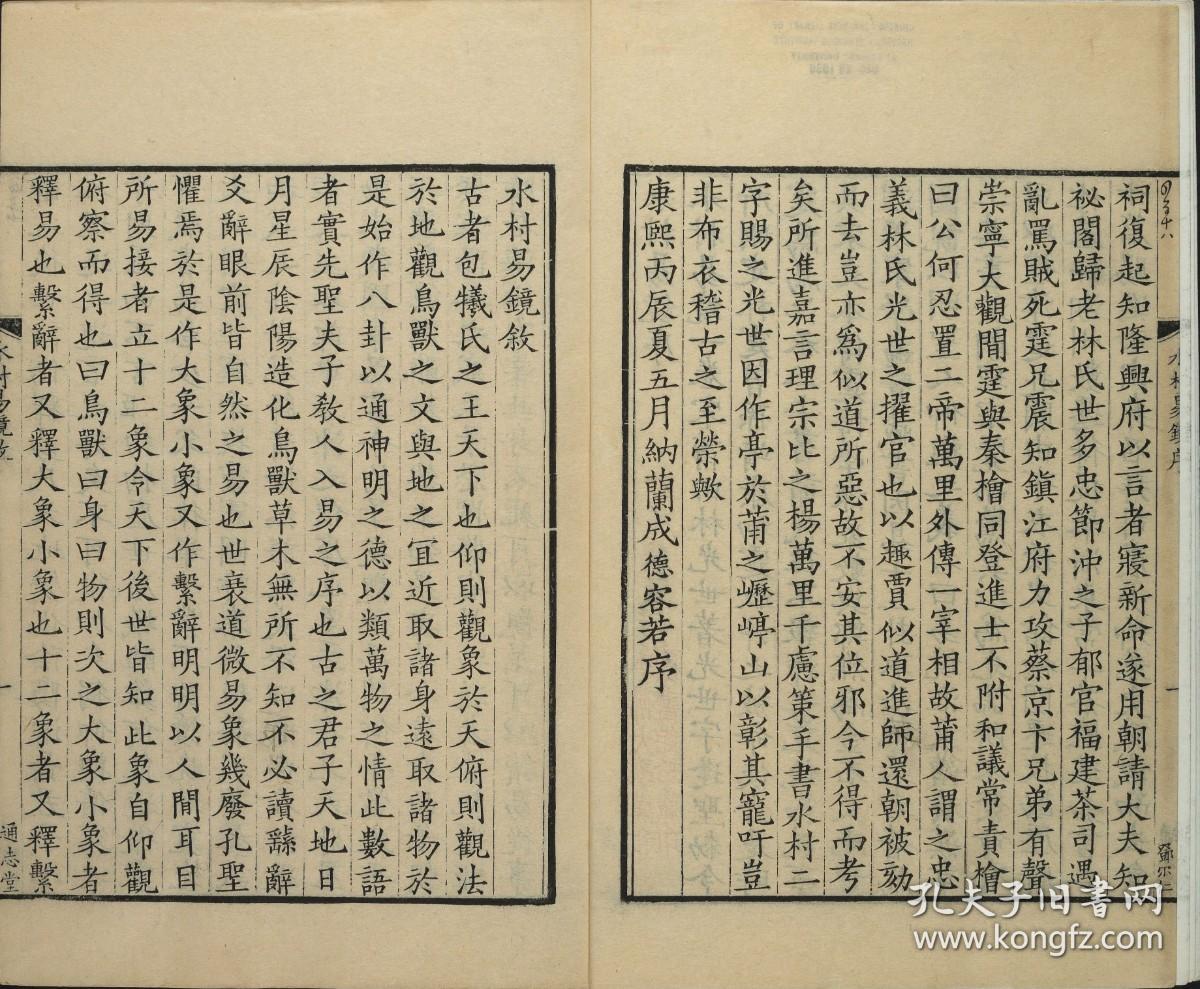 祠復起知隆興府以言者寢新命遂用朝請大夫知
祕閣歸老林氏世多忠節沖之子郁官福建茶司遇
亂罵賊死霆兄震知鎮江府力攻蔡京卞兄弟有聲
崇寧大觀間霆與秦檜同登進士不附和議常責檜
曰公何忍置二帝萬里外傳一宰相故莆人謂之忠
義林氏光世之擢官也以趣賈似道進師還朝被劾
而去豈亦為似道所惡故不安其位邪今不得而考
矣所進嘉言理宗比之楊萬里千慮策手書水村二
字賜之光世因作亭於莆之㠣嵉山以彰其寵吁豈
非布衣稽古之至榮歟
康熙丙辰夏五月納蘭成德容若序
水村易鏡序
一
水村易鏡敘
古者包犧氏之王天下也仰則觀象於天俯則觀法
於地觀鳥獸之文與地之宜近取諸身遠取諸物於
是始作八卦以通神明之德以類萬物之情此數語
者實先聖夫子教人入易之序也古之君子天地日
月星辰陰陽造化鳥獸草木無所不知不必讀繇辭
爻辭眼前皆自然之易也世衰道微易象幾廢孔聖
懼焉於是作大象小象又作繫辭明明以人間耳目
所易接者立十二象令天下後世皆知此象自仰觀
俯察而得也曰鳥獸曰身曰物則次之大象小象者
釋易也繫辭者又釋大象小象也十二象者又釋繫
水村易鏡敘
一
通志堂
孔夫子旧书网
www.kongfz.com